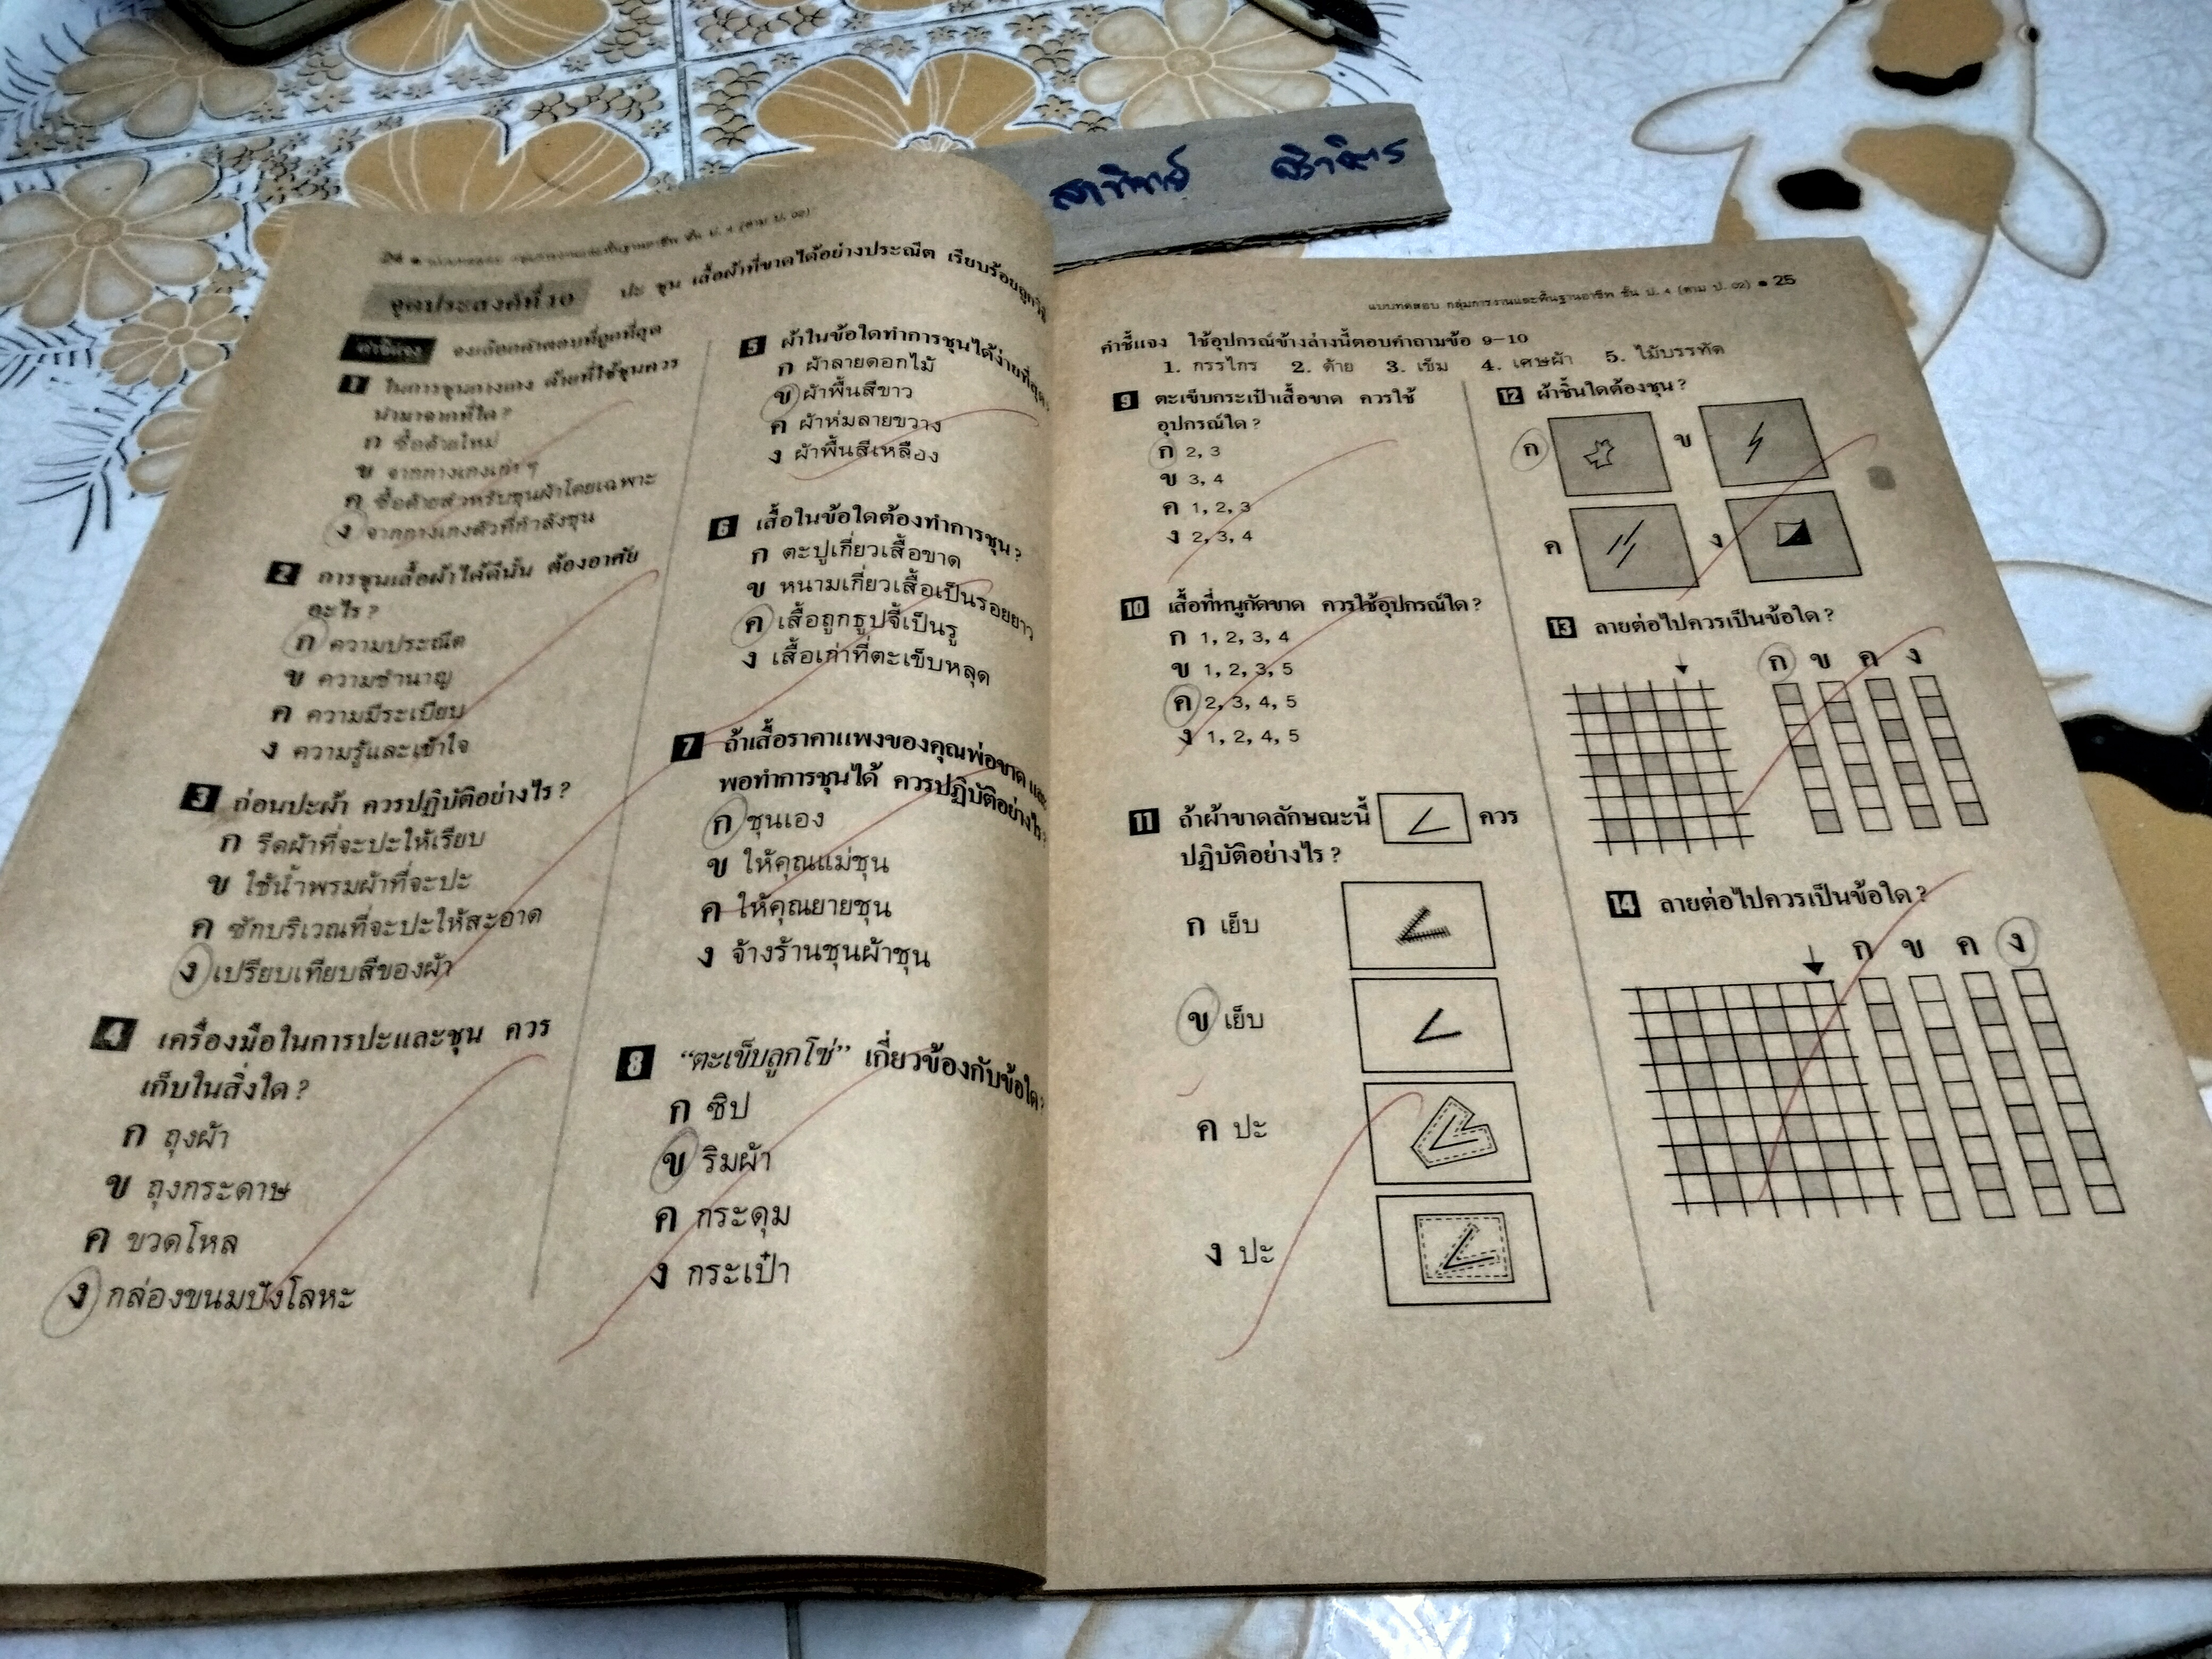 24 ● แบบทดสอบ กลุ่มการงานและพื้นฐานอาชีพ ชั้น ป. 4 (ตาม ป. 02)
จุดประสงค์ที่ 10 ปะ ชุน เสื้อผ้าที่ขาดได้อย่างประณีต เรียบร้อย
คำชี้แจง จงเลือกคำตอบที่ถูกที่สุด
1 ในการชุนกางเกง ด้ายที่ใช้ชุนควร
นำมาจากที่ใด?
ก ซื้อด้ายใหม่
ข จากกางเกงเก่า ๆ
ค ซื้อด้ายสำหรับชุนผ้าโดยเฉพาะ
ง จากกางเกงตัวที่กำลังชุน
2 การชุนเสื้อผ้าได้ดีนั้น ต้องอาศัย
อะไร?
ก ความประณีต
ข ความชำนาญ
ค ความมีระเบียบ
ง ความรู้และเข้าใจ
3 ก่อนปะผ้า ควรปฏิบัติอย่างไร?
ก รีดผ้าที่จะปะให้เรียบ
ข ใช้น้ำพรมผ้าที่จะปะ
ค ซักบริเวณที่จะปะให้สะอาด
ง เปรียบเทียบสีของผ้า
4 เครื่องมือในการปะและชุน ควร
เก็บในสิ่งใด?
ก ถุงผ้า
ข ถุงกระดาษ
ค ขวดโหล
ง กล่องขนมปังโลหะ
5 ผ้าในข้อใดทำการชุนได้ง่ายที่สุด?
ก ผ้าลายดอกไม้
ข ผ้าพื้นสีขาว
ค ผ้าห่มลายขวาง
ง ผ้าพื้นสีเหลือง
6 เสื้อในข้อใดต้องทำการชุน?
ก ตะปูเกี่ยวเสื้อขาด
ข หนามเกี่ยวเสื้อเป็นรอยยาว
ค เสื้อถูกธูปจี้เป็นรู
ง เสื้อเก่าที่ตะเข็บหลุด
7 ถ้าเสื้อราคาแพงของคุณพ่อขาด และ
พอทำการชุนได้ ควรปฏิบัติอย่างไร?
ก ชุนเอง
ข ให้คุณแม่ชุน
ค ให้คุณยายชุน
ง จ้างร้านชุนผ้าชุน
8 “ตะเข็บลูกโซ่” เกี่ยวข้องกับข้อใด?
ก ซิป
ข ริมผ้า
ค กระดุม
ง กระเป๋า
แบบทดสอบ กลุ่มการงานและพื้นฐานอาชีพ ชั้น ป. 4 (ตาม ป. 02) ● 25
คำชี้แจง ใช้อุปกรณ์ข้างล่างนี้ตอบคำถามข้อ 9–10
1. กรรไกร 2. ด้าย 3. เข็ม 4. เศษผ้า 5. ไม้บรรทัด
9 ตะเข็บกระเป๋าเสื้อขาด ควรใช้
อุปกรณ์ใด?
ก 2, 3
ข 3, 4
ค 1, 2, 3
ง 2, 3, 4
10 เสื้อที่หนูกัดขาด ควรใช้อุปกรณ์ใด?
ก 1, 2, 3, 4
ข 1, 2, 3, 5
ค 2, 3, 4, 5
ง 1, 2, 4, 5
11 ถ้าผ้าขาดลักษณะนี้ ควร
ปฏิบัติอย่างไร?
ก เย็บ
ข เย็บ
ค ปะ
ง ปะ
12 ผ้าชิ้นใดต้องชุน?
ก ข
ค ง
13 ลายต่อไปควรเป็นข้อใด?
ก ข ค ง
14 ลายต่อไปควรเป็นข้อใด?
ก ข ค ง